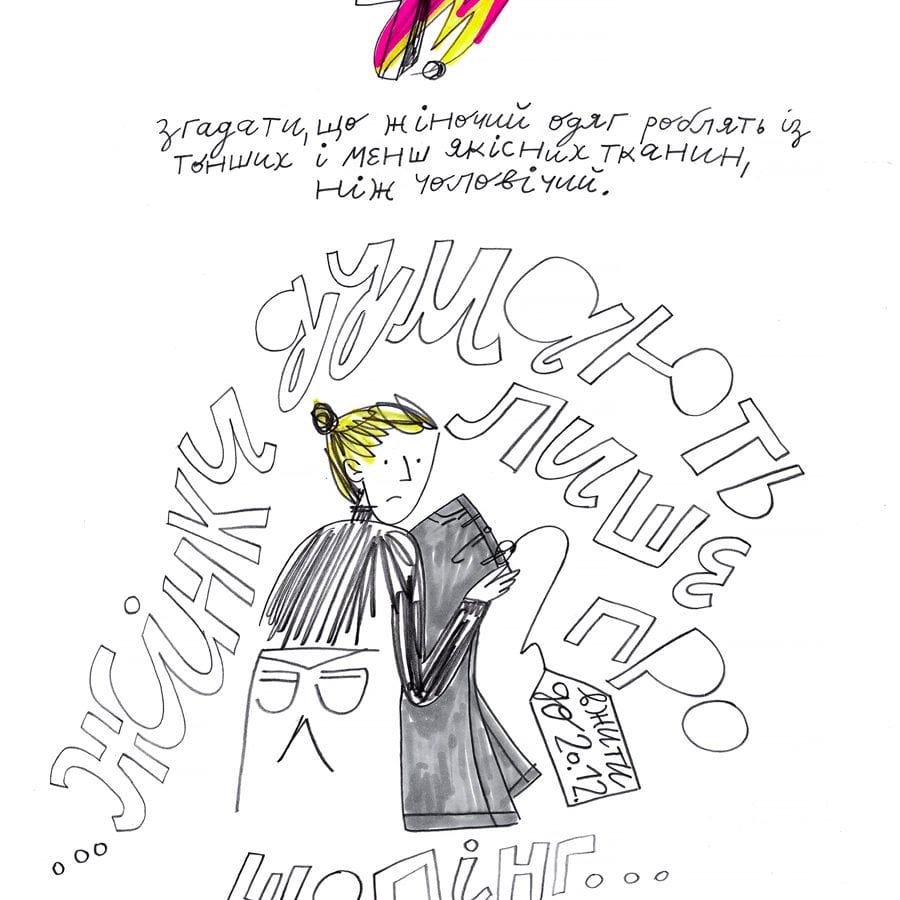 згадати, що жіночий одяг роблять із
тонших і менш якісних тканин,
ніж чоловічий.
...жінки думають
лише про
шопінг...
вжити
до 20.12.